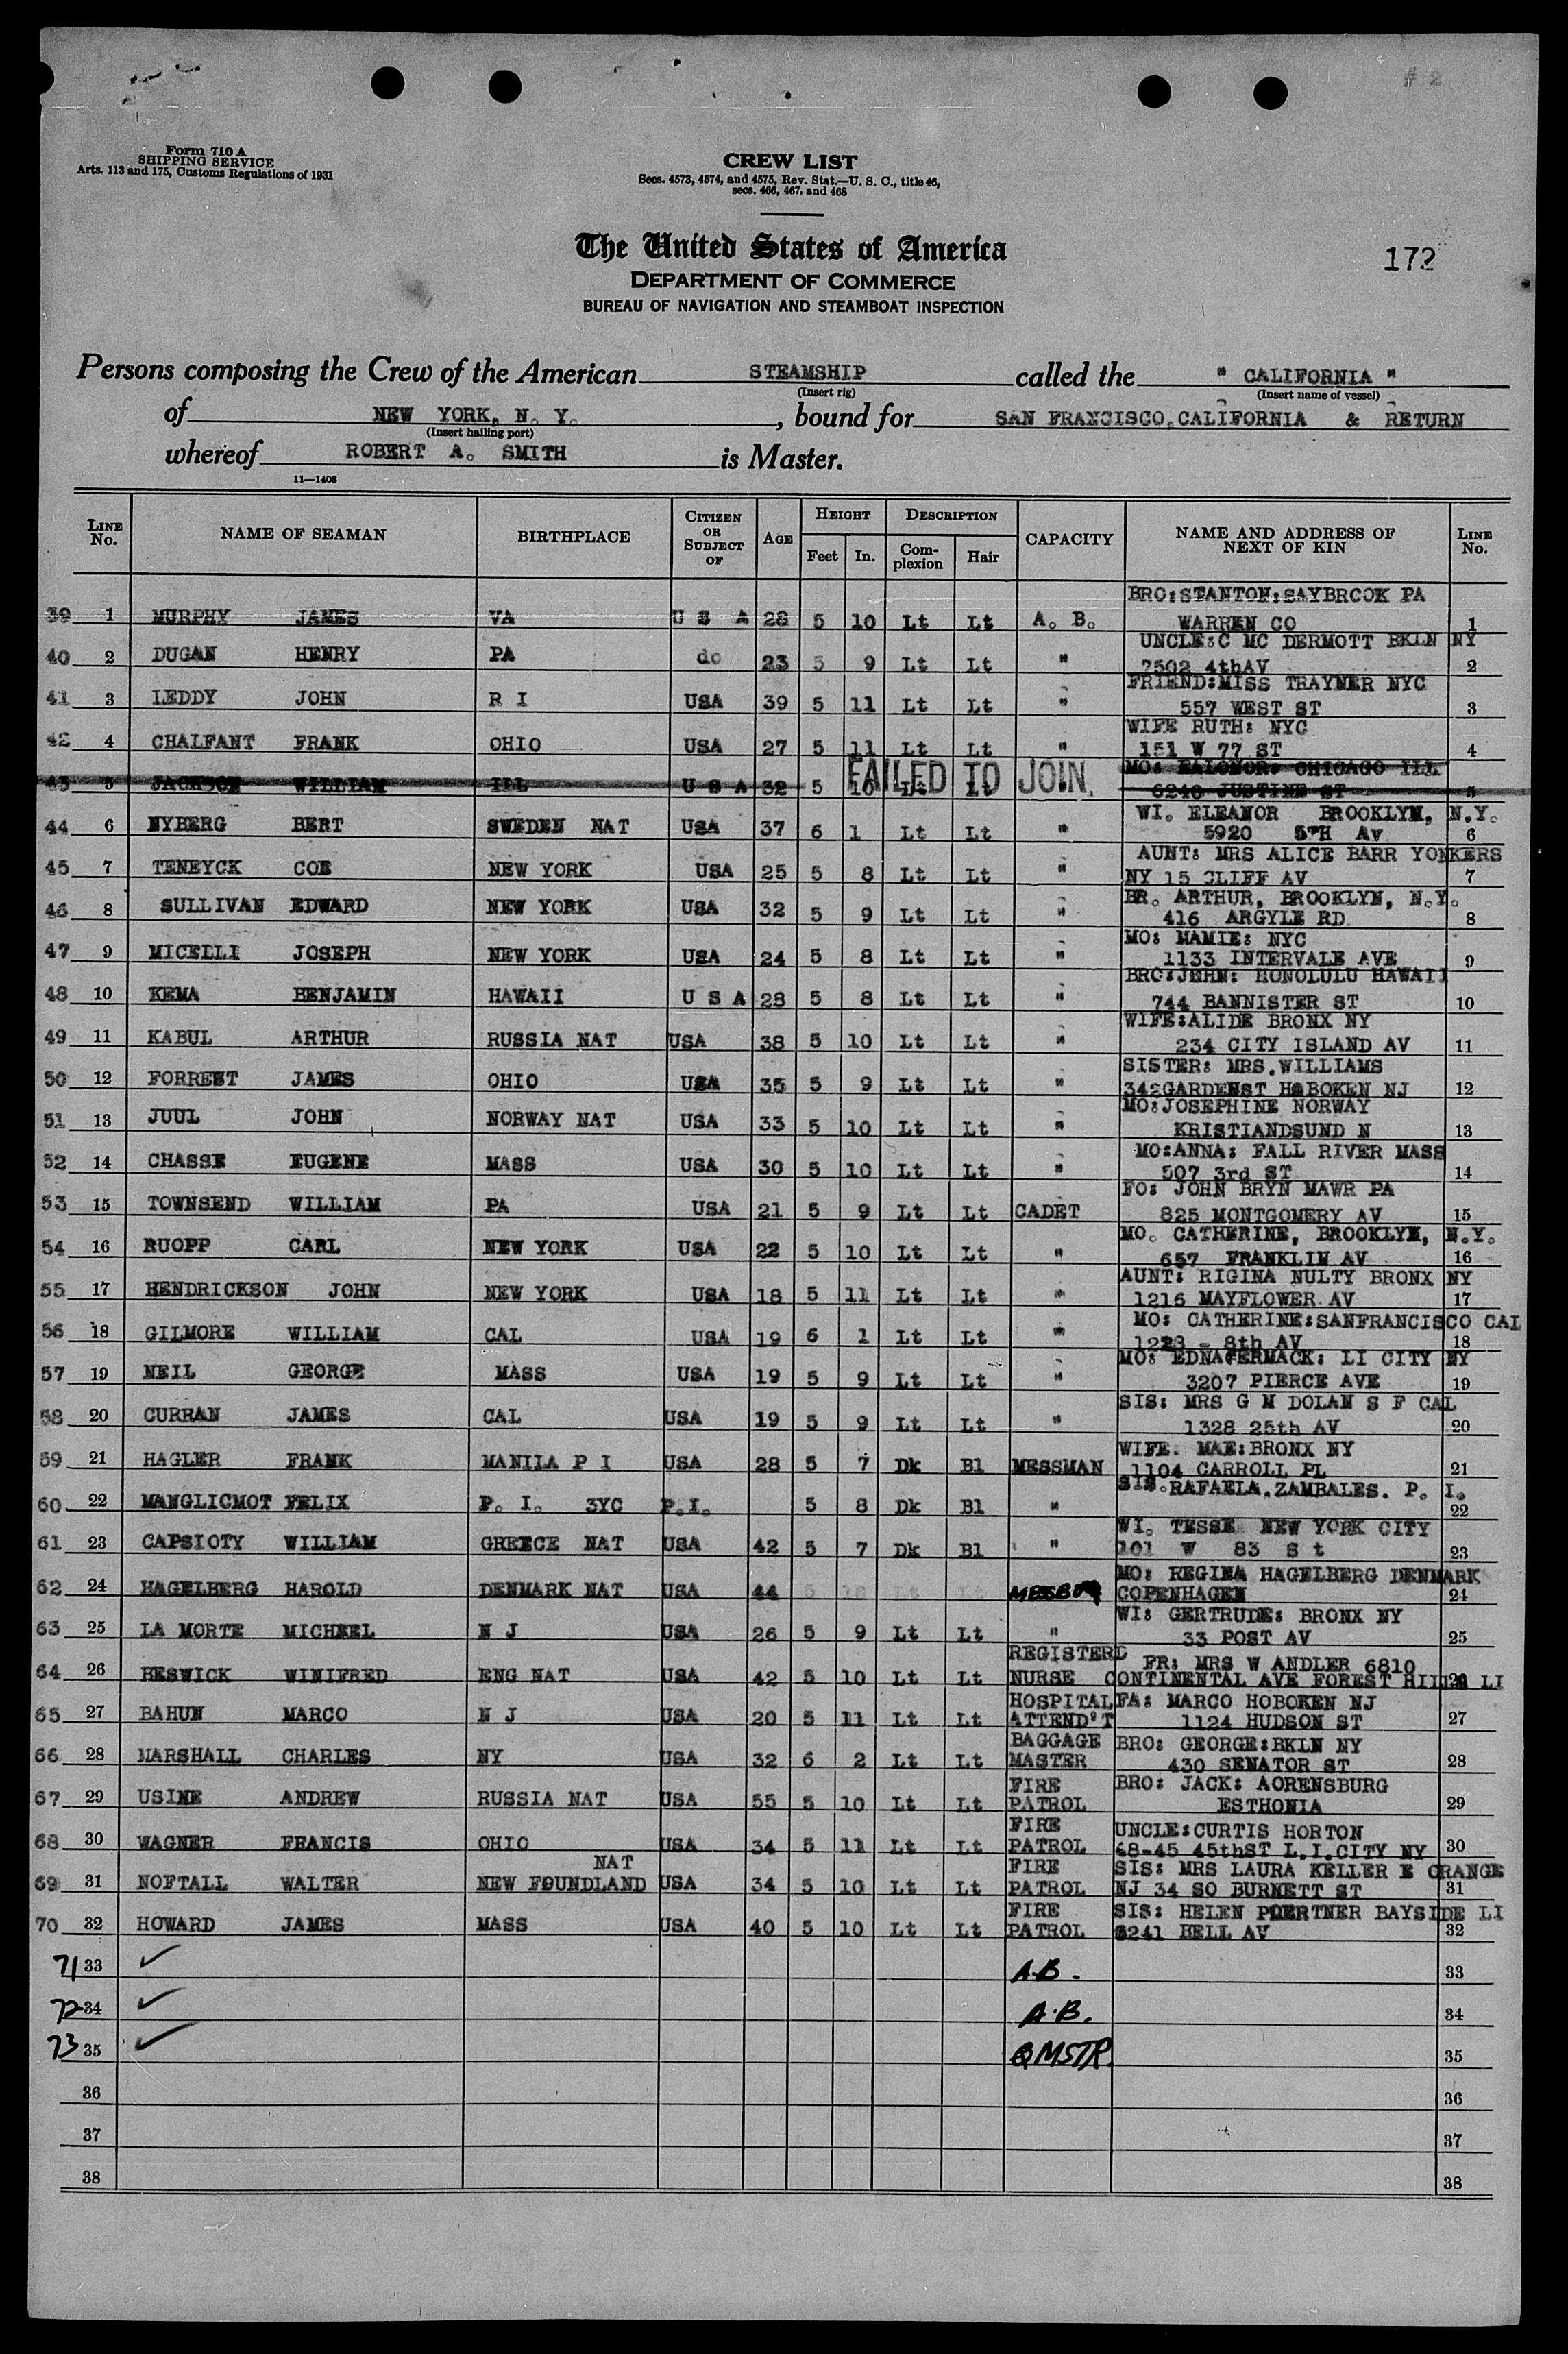 # 2
Form 710 A
SHIPPING SERVICE
Arts. 113 and 175, Customs Regulations of 1931
CREW LIST
Secs. 4573, 4574, and 4575, Rev. Stat.—U. S. C., title 46,
secs. 466, 467, and 468
The United States of America
DEPARTMENT OF COMMERCE
BUREAU OF NAVIGATION AND STEAMBOAT INSPECTION
172
Persons composing the Crew of the American STEAMSHIP called the " CALIFORNIA "
(Insert rig) (Insert name of vessel)
of NEW YORK, N. Y. , bound for SAN FRANCISCO, CALIFORNIA & RETURN
(Insert hailing port)
whereof ROBERT A. SMITH is Master.
11—1408
LINE No. NAME OF SEAMAN BIRTHPLACE CITIZEN OR SUBJECT OF AGE HEIGHT Feet In. DESCRIPTION Complexion Hair CAPACITY NAME AND ADDRESS OF NEXT OF KIN LINE No.
BRO:STANTON:SAYBROOK PA
39 1 MURPHY JAMES VA U S A 28 5 10 Lt Lt A. B. WARREN CO 1
UNCLE:C MC DERMOTT BKLN NY
40 2 DUGAN HENRY PA do 23 5 9 Lt Lt " 7502 4thAV 2
FRIEND:MISS TRAYNER NYC
41 3 LEDDY JOHN R I USA 39 5 11 Lt Lt " 557 WEST ST 3
WIFE RUTH: NYC
42 4 CHALFANT FRANK OHIO USA 27 5 11 Lt Lt " 151 W 77 ST 4
MO: EALONOR: CHICAGO ILL
43 5 JACKSON WILLIAM ILL U S A 32 5 10 Lt Lt FAILED TO JOIN. 6240 JUSTINE ST 5
WI. ELEANOR BROOKLYN, N.Y.
44 6 NYBERG BERT SWEDEN NAT USA 37 6 1 Lt Lt " 5920 5TH Av 6
AUNT: MRS ALICE BARR YONKERS
45 7 TENEYCK COE NEW YORK USA 25 5 8 Lt Lt " NY 15 CLIFF AV 7
BR. ARTHUR, BROOKLYN, N.Y.
46 8 SULLIVAN EDWARD NEW YORK USA 32 5 9 Lt Lt " 416 ARGYLE RD. 8
MO: MAMIE: NYC
47 9 MICELLI JOSEPH NEW YORK USA 24 5 8 Lt Lt " 1133 INTERVALE AVE 9
BRO:JOHN: HONOLULU HAWAII
48 10 KEMA BENJAMIN HAWAII U S A 28 5 8 Lt Lt " 744 BANNISTER ST 10
WIFE:ALIDE BRONX NY
49 11 KABUL ARTHUR RUSSIA NAT USA 38 5 10 Lt Lt " 234 CITY ISLAND AV 11
SISTER: MRS.WILLIAMS
50 12 FORREST JAMES OHIO USA 35 5 9 Lt Lt " 342GARDENST HOBOKEN NJ 12
MO:JOSEPHINE NORWAY
51 13 JUUL JOHN NORWAY NAT USA 33 5 10 Lt Lt " KRISTIANDSUND N 13
MO:ANNA: FALL RIVER MASS
52 14 CHASSE EUGENE MASS USA 30 5 10 Lt Lt " 507 3rd ST 14
FO: JOHN BRYN MAWR PA
53 15 TOWNSEND WILLIAM PA USA 21 5 9 Lt Lt CADET 825 MONTGOMERY AV 15
MO. CATHERINE, BROOKLYN, N.Y.
54 16 RUOPP CARL NEW YORK USA 22 5 10 Lt Lt " 657 FRANKLIN AV 16
AUNT: RIGINA NULTY BRONX NY
55 17 HENDRICKSON JOHN NEW YORK USA 18 5 11 Lt Lt " 1216 MAYFLOWER AV 17
MO: CATHERINE:SANFRANCISCO CAL
56 18 GILMORE WILLIAM CAL USA 19 6 1 Lt Lt " 1223 - 8th AV 18
MO: EDNAGERMACK: LI CITY NY
57 19 NEIL GEORGE MASS USA 19 5 9 Lt Lt " 3207 PIERCE AVE 19
SIS: MRS G M DOLAN S F CAL
58 20 CURRAN JAMES CAL USA 19 5 9 Lt Lt " 1328 25th AV 20
WIFE: MAE:BRONX NY
59 21 HAGLER FRANK MANILA P I USA 28 5 7 Dk Bl MESSMAN 1104 CARROLL PL 21
SIS.RAFAELA.ZAMBALES. P. I.
60 22 MANGLICMOT FELIX P. I. 3YC P.I. 5 8 Dk Bl " 22
WI. TESSE NEW YORK CITY
61 23 CAPSIOTY WILLIAM GREECE NAT USA 42 5 7 Dk Bl " 101 W 83 S t 23
MO: REGINA HAGELBERG DENMARK
62 24 HAGELBERG HAROLD DENMARK NAT USA 44 5 10 Lt Lt COPENHAGEN 24
WI: GERTRUDE: BRONX NY
63 25 LA MORTE MICHEEL N J USA 26 5 9 Lt Lt " 33 POST AV 25
REGISTERD FR: MRS W ANDLER 6810
64 26 BESWICK WINIFRED ENG NAT USA 42 5 10 Lt Lt NURSE CONTINENTAL AVE FOREST HILLS LI 26
HOSPITAL FA: MARCO HOBOKEN NJ
65 27 BAHUN MARCO N J USA 20 5 11 Lt Lt ATTEND'T 1124 HUDSON ST 27
BAGGAGE BRO: GEORGE:BKLN NY
66 28 MARSHALL CHARLES NY USA 32 6 2 Lt Lt MASTER 430 SENATOR ST 28
FIRE BRO: JACK: AORENSBURG
67 29 USINE ANDREW RUSSIA NAT USA 55 5 10 Lt Lt PATROL ESTHONIA 29
FIRE UNCLE:CURTIS HORTON
68 30 WAGNER FRANCIS OHIO USA 34 5 11 Lt Lt PATROL 48-45 45thST L.I.CITY NY 30
NAT FIRE SIS: MRS LAURA KELLER E ORANGE
69 31 NOFTALL WALTER NEW FOUNDLAND USA 34 5 10 Lt Lt PATROL NJ 34 SO BURNETT ST 31
FIRE SIS: HELEN POERTNER BAYSIDE LI
70 32 HOWARD JAMES MASS USA 40 5 10 Lt Lt PATROL 3241 BELL AV 32
71 33 ✓ A.B. 33
72 34 ✓ A.B. 34
73 35 ✓ QMSTR. 35
36 36
37 37
38 38